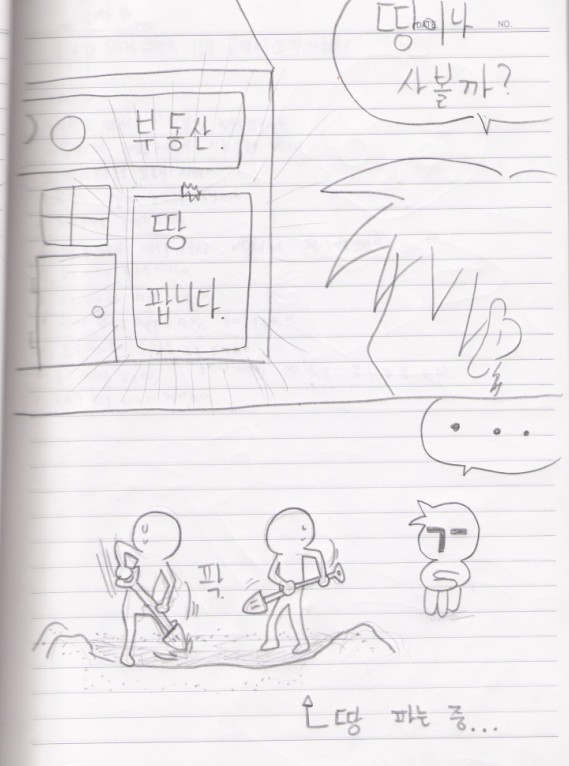 땅이나
DATE
NO.
사볼까?
부동산.
땅
팝니다.
...
팍
땅 파는 중...